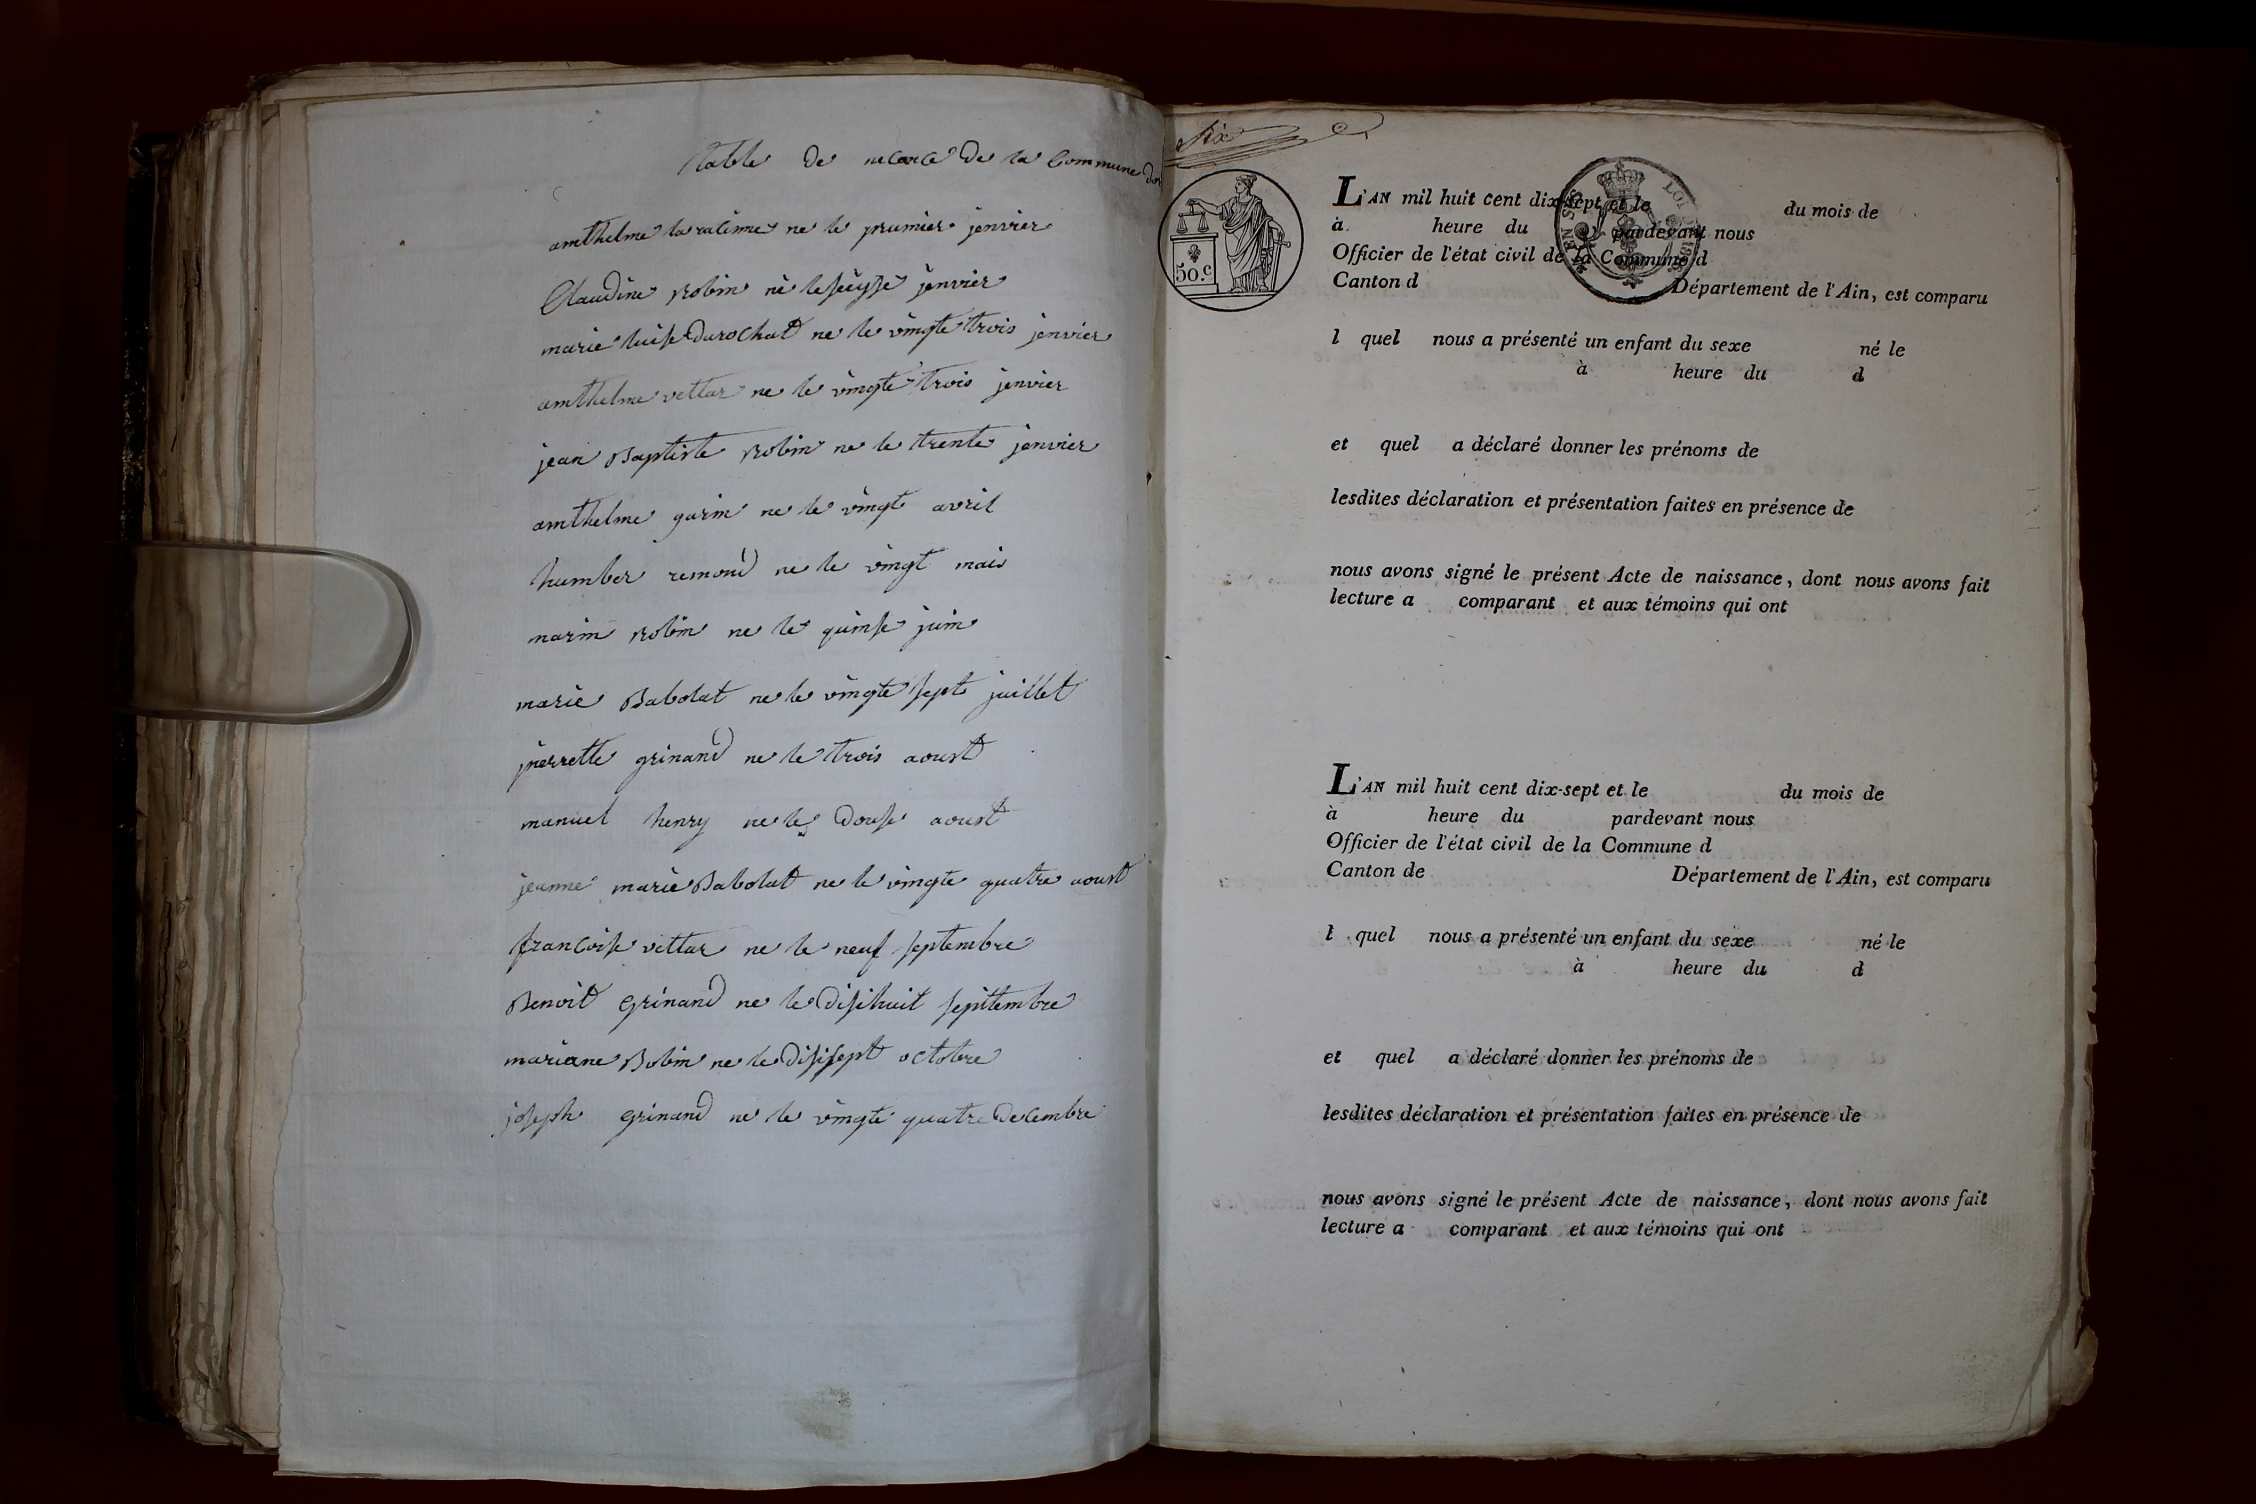 table de necance de la Commune
amthelme laracinne ne le prumier jenvier
Claudine Robin nè le sèzse jenvier
marie luise Durochat ne le vingte trois jenvier
amthelme vettar ne le vingte trois jenvier
jean Baptiste Robin ne le trente jenvier
amthelme garin ne le vingt avril
humber remond ne le vingt mais
marin Robin ne le quinse juin
marie Babolat ne le vingte sept juillet
pierrette grinand ne le trois aoust
manuel henry ne le douse aoust
jeanne marie Babolat ne le vingte quatre aoust
francoise vettar ne le neuf septembre
Benoit Grinand ne le disihuit sepitembre
mariane Bobin ne le disisept octobre
joseph Grinand ne le vingte quatre decembre
six
50.c
L'AN mil huit cent dix-sept et le du mois de
à heure du pardevant nous
Officier de l'état civil de la Commune d
Canton d Département de l'Ain, est comparu
l quel nous a présenté un enfant du sexe né le
à heure du d
et quel a déclaré donner les prénoms de
lesdites déclaration et présentation faites en présence de
nous avons signé le présent Acte de naissance, dont nous avons fait
lecture a comparant et aux témoins qui ont
L'AN mil huit cent dix-sept et le du mois de
à heure du pardevant nous
Officier de l'état civil de la Commune d
Canton de Département de l'Ain, est comparu
l quel nous a présenté un enfant du sexe né le
à heure du d
et quel a déclaré donner les prénoms de
lesdites déclaration et présentation faites en présence de
nous avons signé le présent Acte de naissance, dont nous avons fait
lecture a comparant et aux témoins qui ont